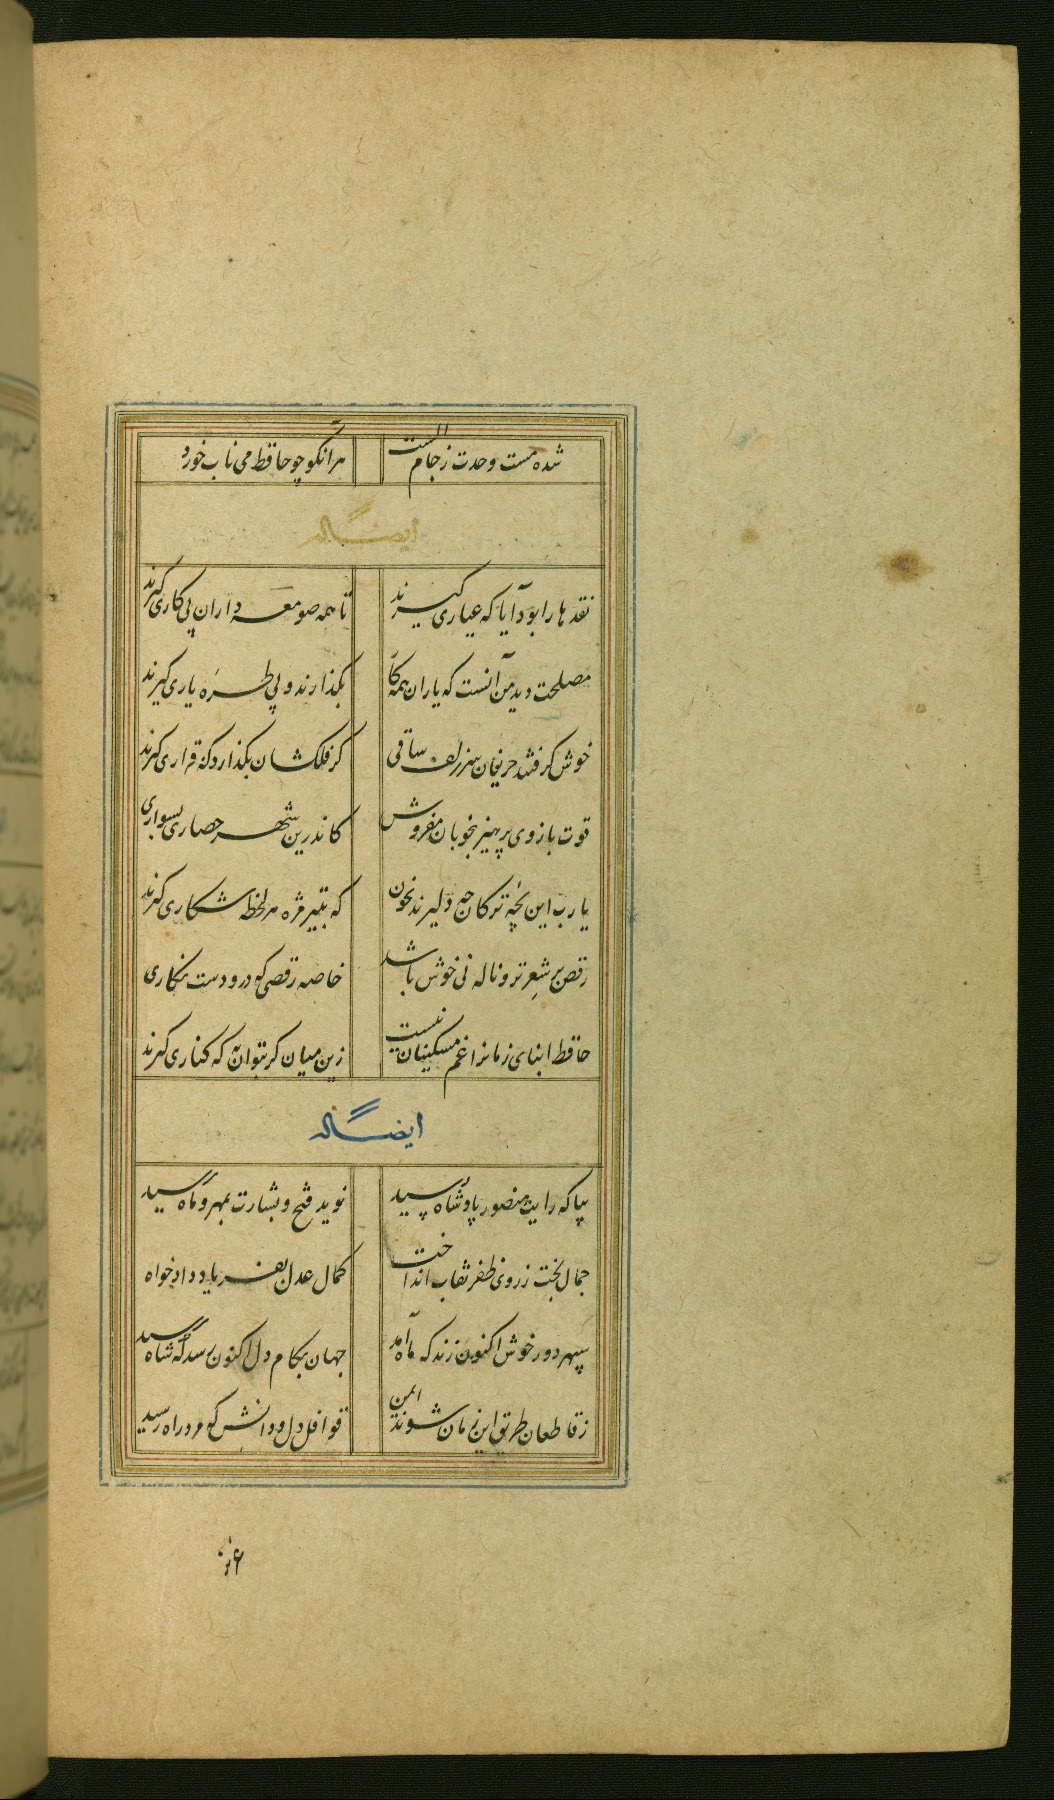 شده مست وحدت ز جام الست هر آنکو چو حافظ می ناب خورد
ایضاً له
نقدها را بود آیا که عیاری گیرند تا همه صومعه داران پی کاری گیرند
مصلحت دید من آنست که یاران همه کار بگذارند و پی طره یاری گیرند
خوش گرفتند حریفان سر زلف ساقی گر فلکشان بگذارد که قراری گیرند
قوت بازوی پرهیز بخوبان مفروش کاندرین شهر حصاری بسواری
یارب این بچه ترکان چه دلیرند بخون که بتیر مژه هر لحظه شکاری گیرند
رقص بر شعر تر و ناله نی خوش باشد خاصه رقصی که درو دست نگاری
حافظ ابنای زمانرا غم مسکینان نیست زین میان گر بتوان به که کناری گیرند
ایضاً له
بیا که رایت منصور پادشاه رسید نوید فتح و بشارت بمهر و ماه رسید
جمال بخت ز روی ظفر نقاب انداخت کمال عدل بفریاد دادخواه
سپهر دور خوش اکنون زند که ماه آمد جهان بکام دل اکنون رسد که شاه رسید
ز قاطعان طریق این زمان شوند ایمن قوافل دل و دانش که مرد راه رسید